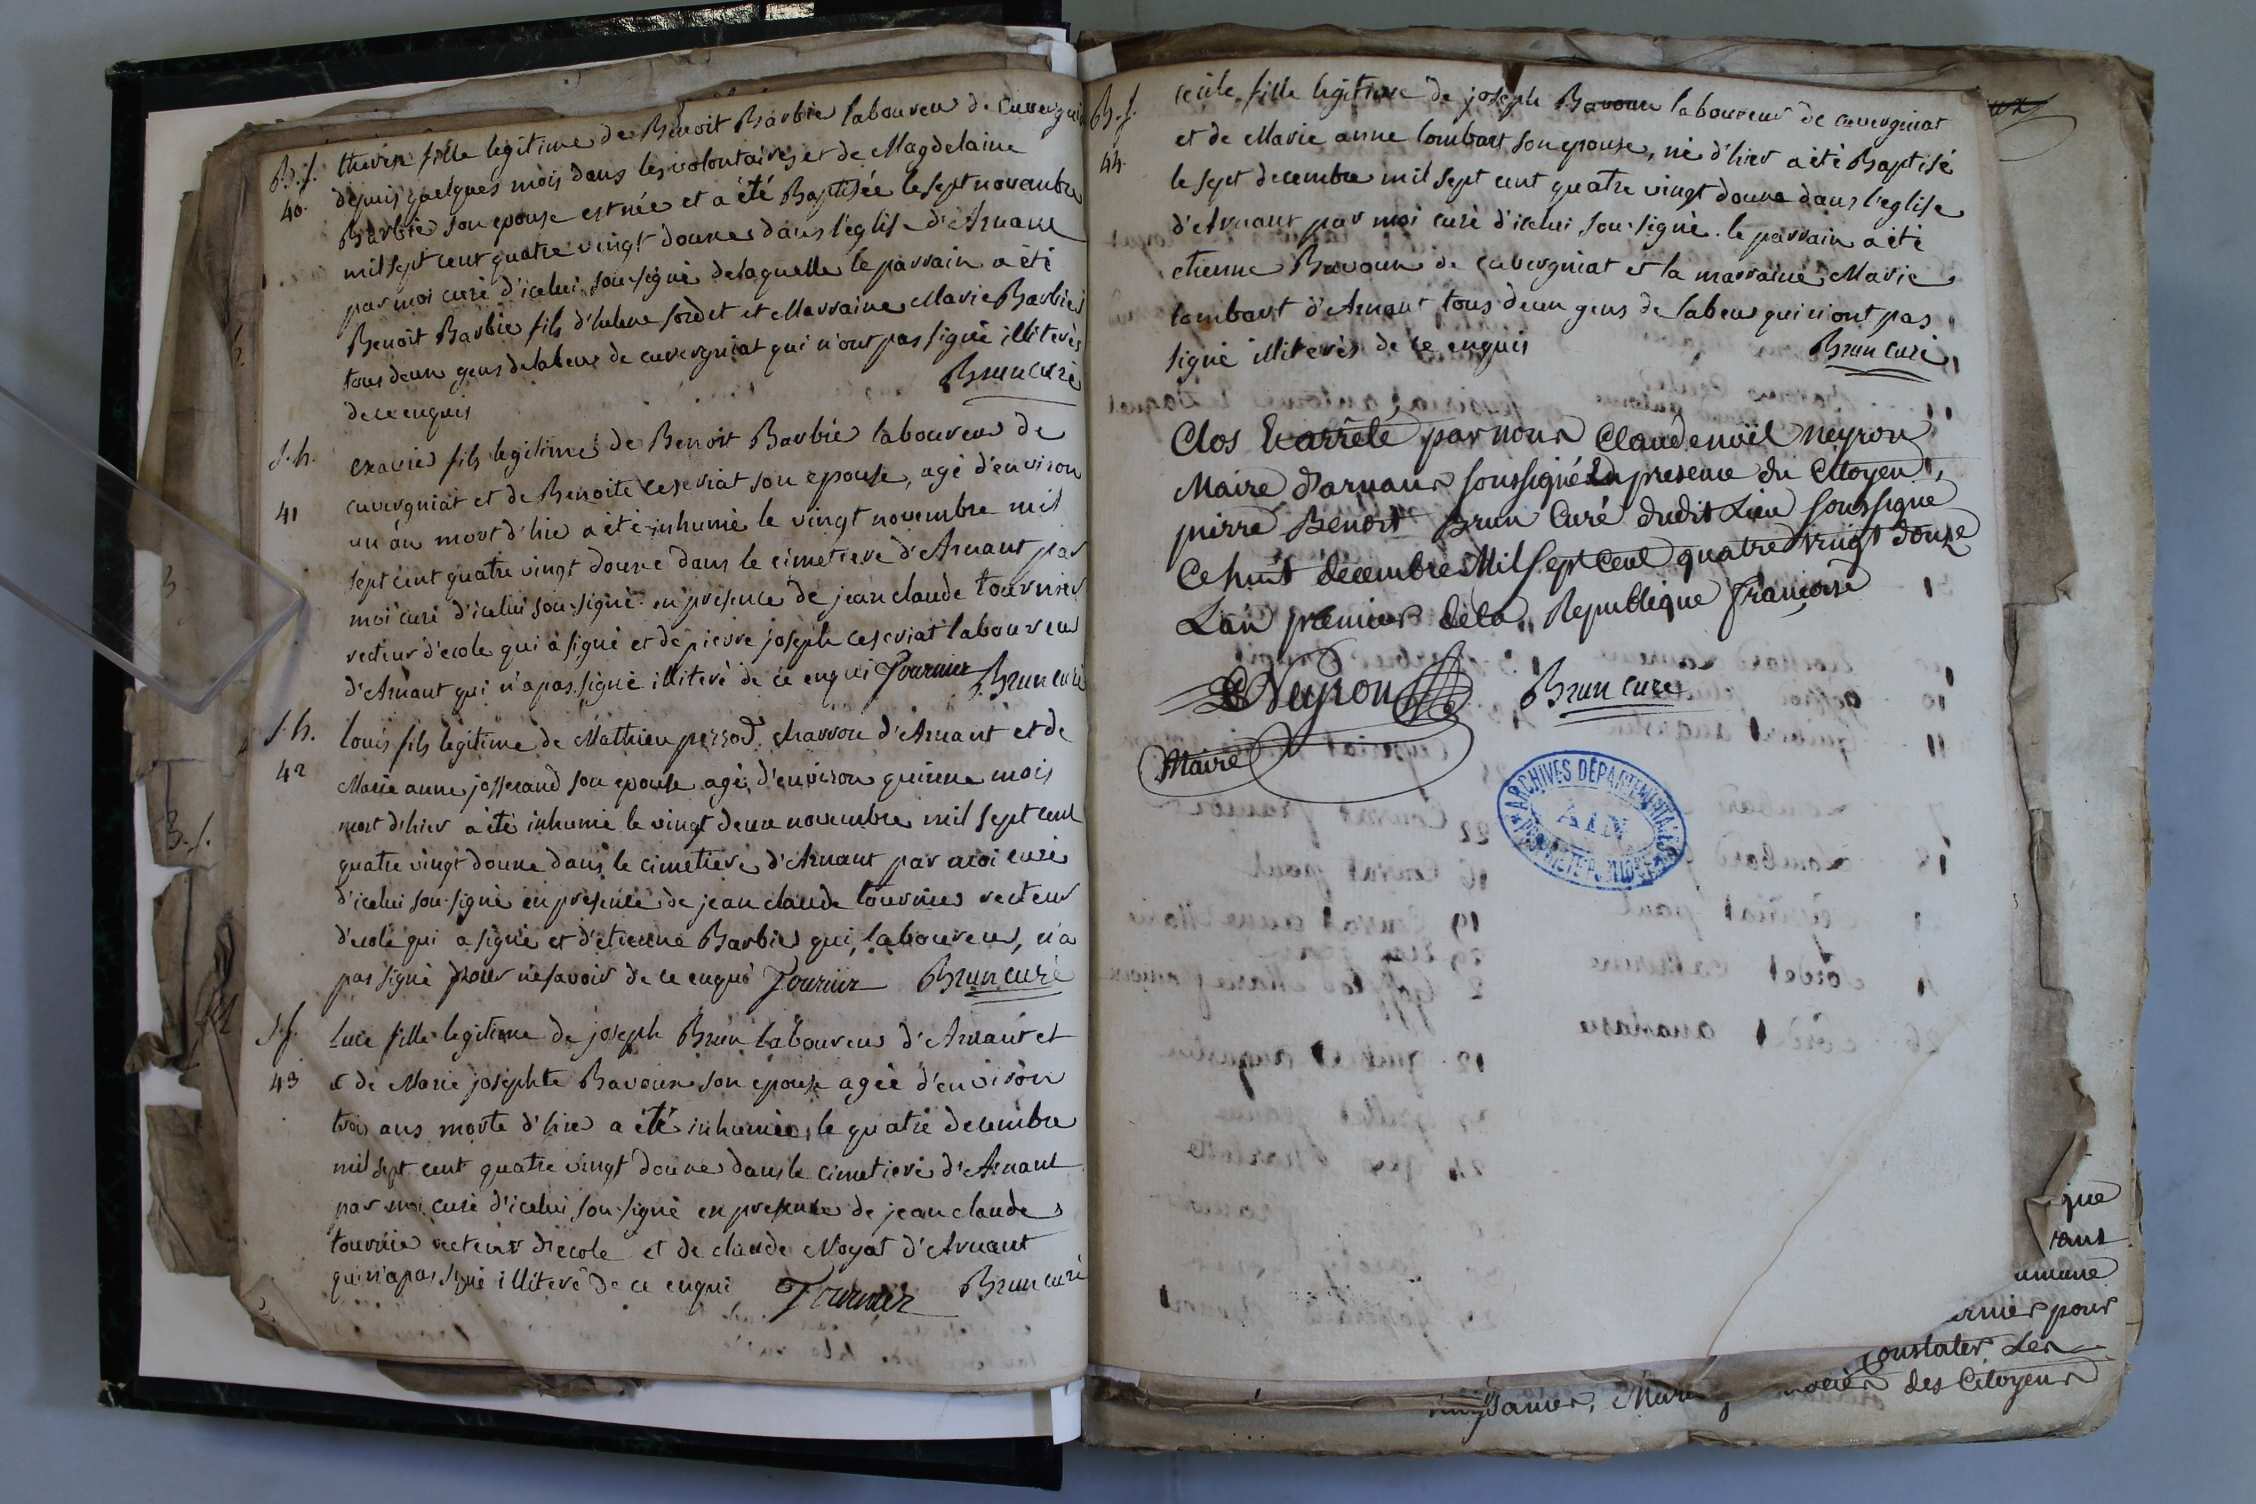 B.f. therese fille legitime de Benoit Barbie laboureur de
40. depuis quelques mois dans les volontaires et de Magdelaine
Barbie son epouse est née et a été Baptisée le sept novembre
mil sept cent quatre vingt douze dans l'eglise d'Arnant
par moi curé d'icelui sou-signé de laquelle le parrain a été
Benoit Barbie fils d'helene sordet et Marraine Marie Barbie
tous deux gens de labeur de cuvergniat qui n'ont pas signé illiterés
de ce enquis
Brun curé
s.h. exavie fils legitime de Benoit Barbié laboureur de
cuvergniat et de Benoite ceseriat son epouse, agé d'environ
41 un an mort d'hier a été inhumé le vingt novembre mil
sept cent quatre vingt douze dans le cimetiere d'Arnant par
moi curé d'icelui sou-signé en presence de jean claude tournier
recteur d'ecole qui a signé et de pierre joseph ceseriat laboureur
d'Arnant qui n'a pas signé illiteré de ce enquis Tournier Brun curé
s.h. louis fils legitime de Mathieu perrod charron d'Arnant et de
42 Marie anne josserand son epouse agé d'environ quinze mois
mort d'hier a été inhumé le vingt deux novembre mil sept cent
quatre vingt douze dans le cimetiere d'Arnant par moi curé
d'icelui sou-signé en presence de jean claude tournier recteur
d'ecole qui a signé et d'etienne Barbie qui, laboureur, n'a
pas signé pour ne savoir de ce enquis Tournier Brun curé
s.f. luce fille legitime de joseph Brun laboureur d'Arnant et
43 et de Marie josephte Bavoux son epouse agée d'environ
trois ans morte d'hier a été inhumée le quatre decembre
mil sept cent quatre vingt douze dans le cimetiere d'Arnant
par moi curé d'icelui sou-signé en presence de jean claude
tournier recteur d'ecole et de claude Noyat d'Arnant
qui n'a pas signé illiteré de ce enquis Tournier Brun curé
B.f. cecile fille legitime de joseph Bavoux laboureur de cuvergniat
et de Marie anne lombart son epouse, né d'hier a été Baptisé
44. le sept decembre mil sept cent quatre vingt douze dans l'eglise
d'Arnant par moi curé d'icelui sou-signé. le parrain a été
etienne Bavoux de cuvergniat et la marraine Marie
lombart d'Arnant tous deux gens de labeur qui n'ont pas
signé illiterés de ce enquis Brun curé
Clos & arrêté par nous Claude noël neyron
Maire d'arnans soussigné En presence du Citoyen
pierre Benoit Brun Curé dudit Lieu soussigné
Ce huit décembre Mil Sept Cent quatre vingt douze
L'an premier de la Republique francoise
Neyron Brun curé
Maire
ARCHIVES DÉPARTEMENTALES
AIN
que
umane
pour
constater Les
des Citoyens